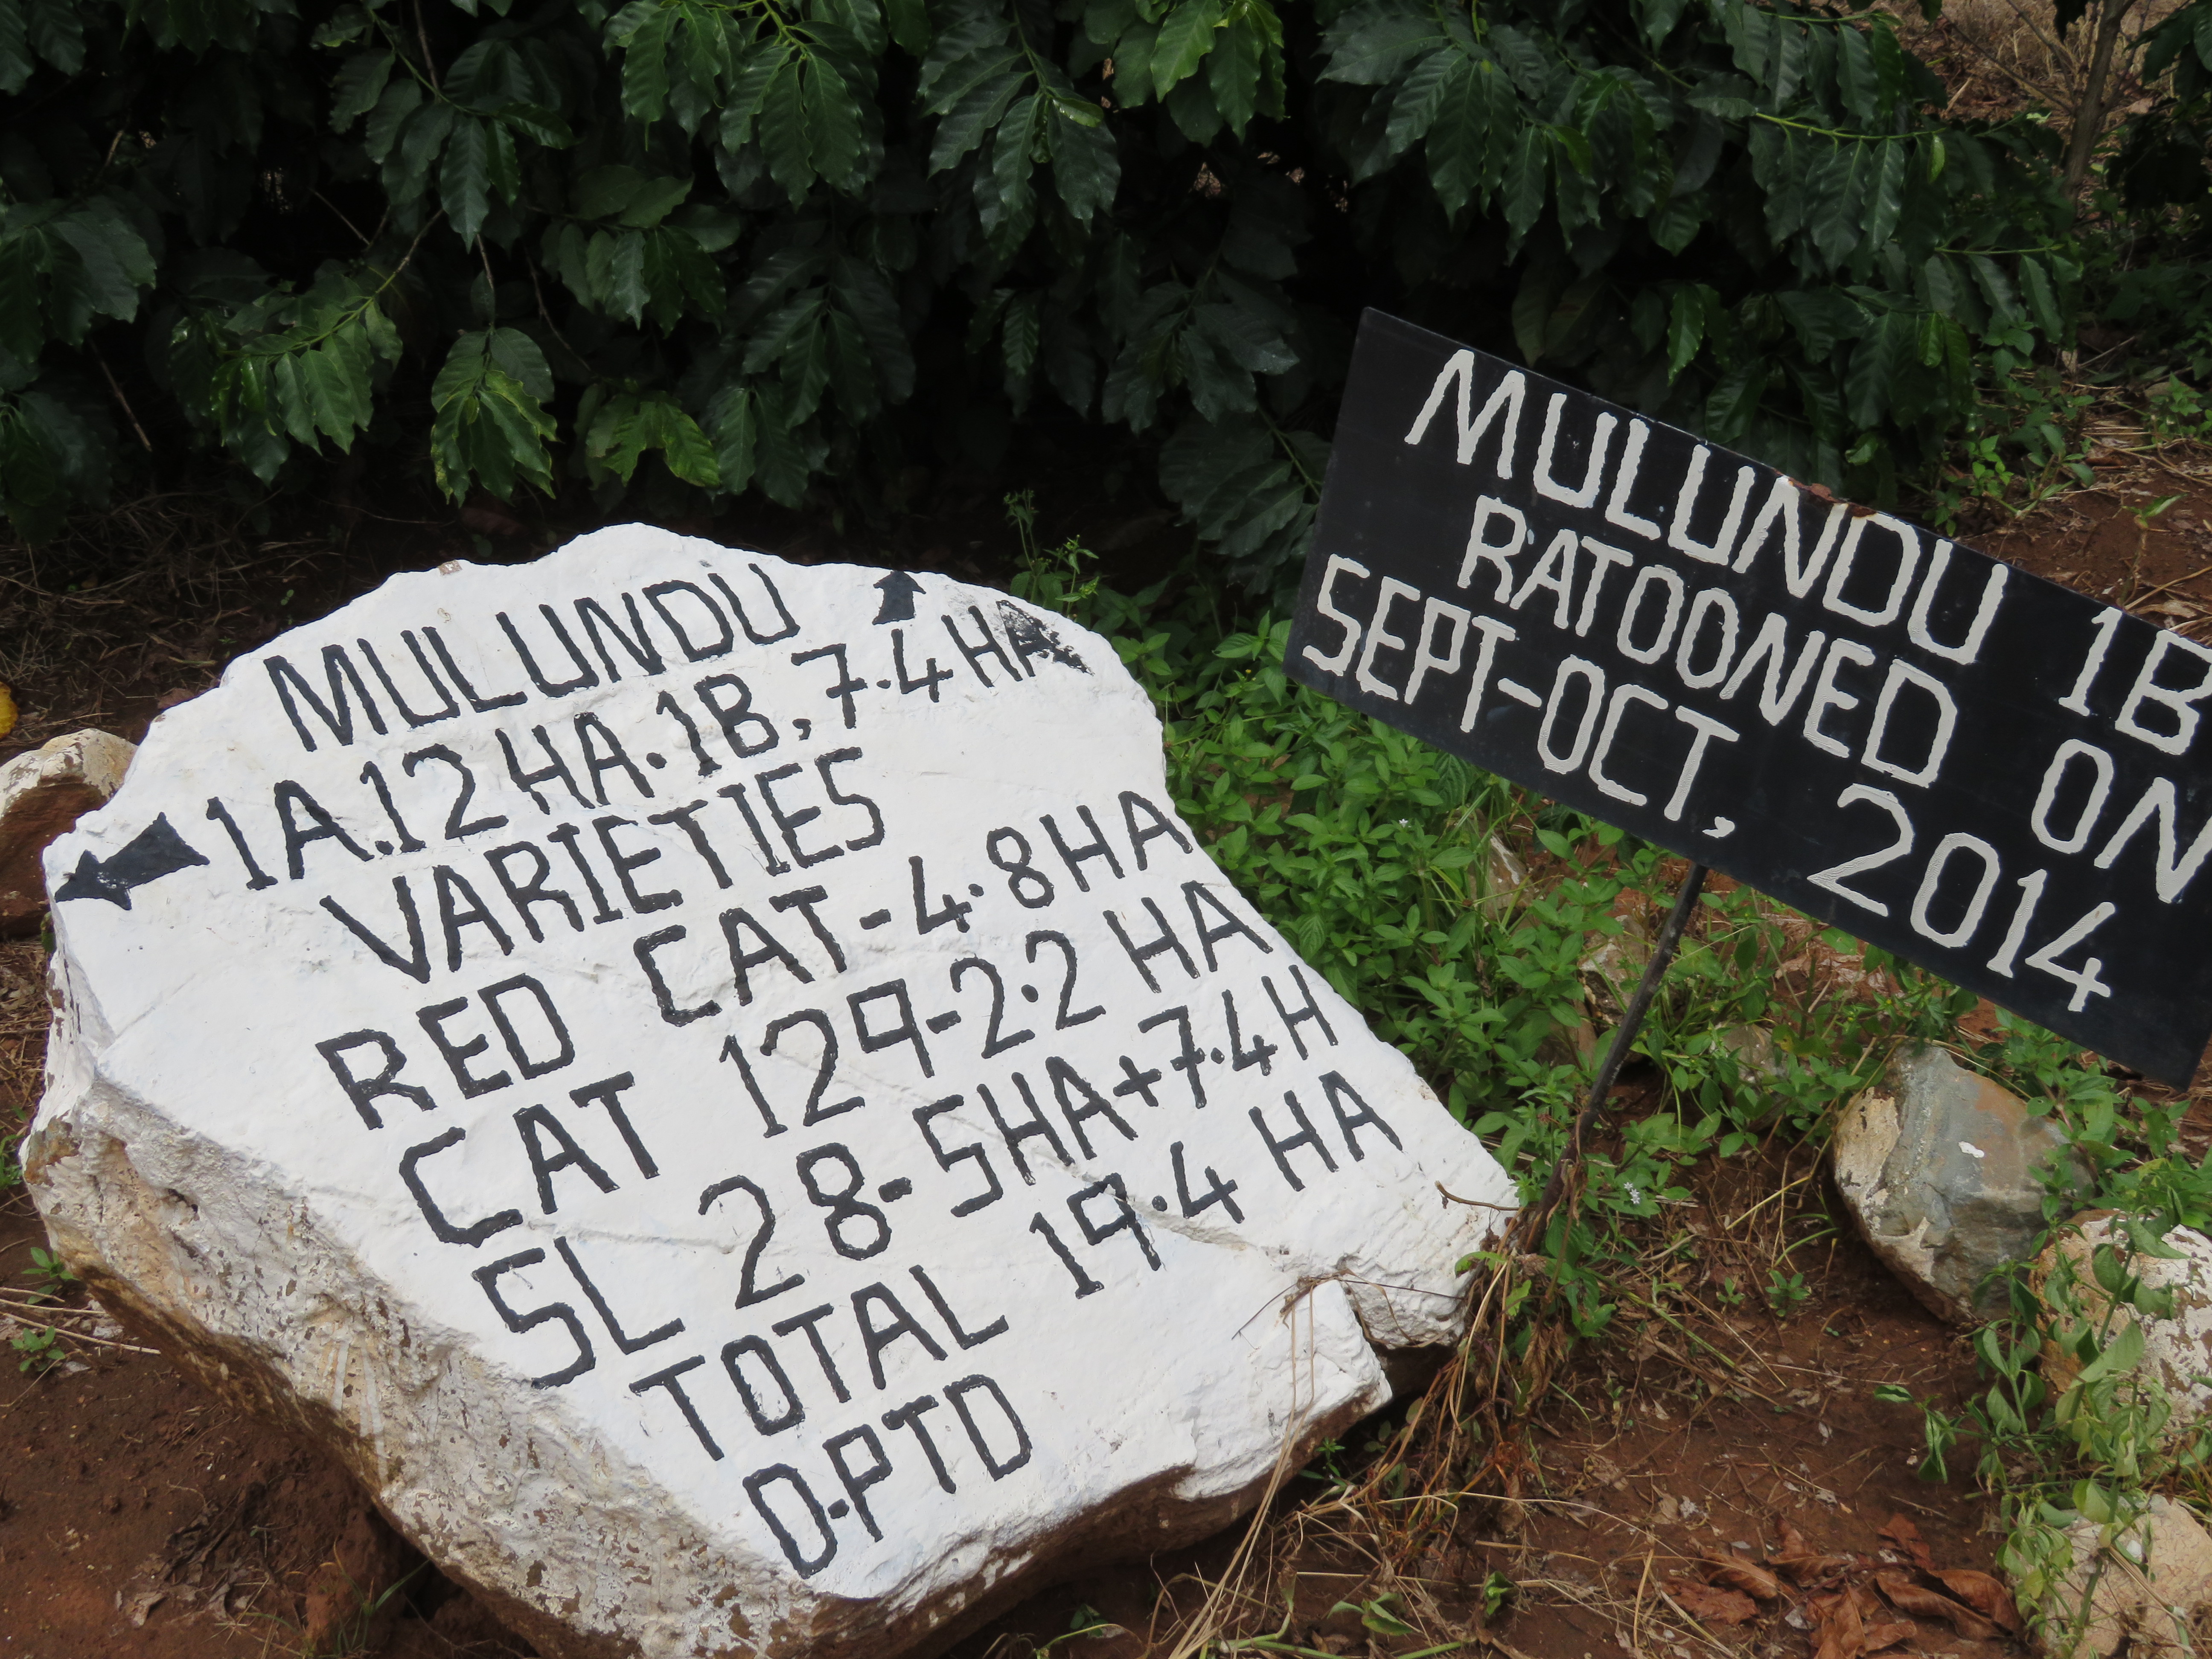 MULUNDU
1A.12HA.1B,7.4HA
VARIETIES
RED CAT-4.8HA
CAT 129-2.2 HA
SL 28-5HA+7.4H
TOTAL 19.4 HA
D.PTD
MULUNDU 1B
RATOONED ON
SEPT-OCT, 2014